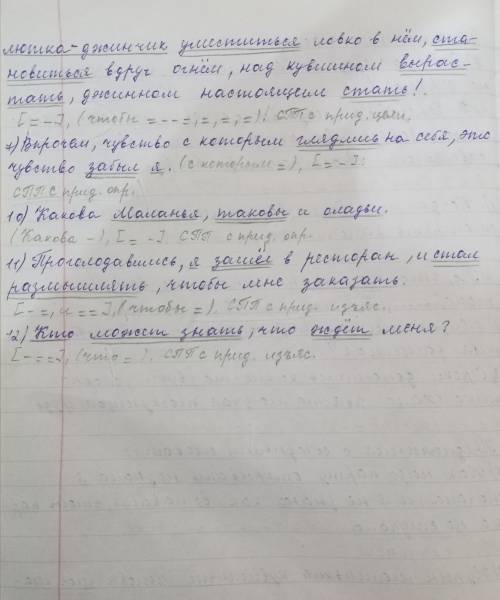 люшка-джинчик уместиться ловко в нём, ста-
новиться вдруг огнём, над кувшином вырас-
тать, джинном настоящим стать!.
[=-], (чтобы =--=,=,=,=)! СПП с прид. цели.
9) Впрочем, чувство с которым гляделись на себя, это
чувство забыл я. (с которым =), [=-].
СПП с прид. опр.
10) Какова Маланья, таковы и оладьи.
(Какова -), [= -]. СПП с прид. опр.
11) Проголодавшись, я зашёл в ресторан, и стал
размышлять, чтобы мне заказать.
[-=, и ==], (чтобы =). СПП с прид. изъяс.
12) Кто может знать, что ждёт меня?
[-==], (что =). СПП с прид. изъяс.